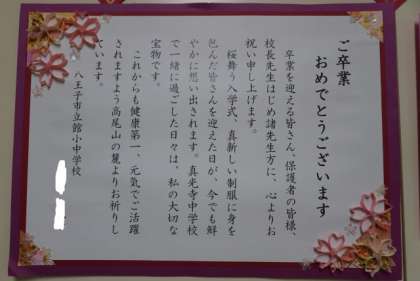 ご卒業
おめでとうございます
卒業を迎える皆さん、保護者の皆様、
校長先生はじめ諸先生方に、心よりお
祝い申し上げます。
桜舞う入学式、真新しい制服に身を
包んだ皆さんを迎えた日が、今でも鮮
やかに想い出されます。真光寺中学校
で一緒に過ごした日々は、私の大切な
宝物です。
これからも健康第一、元気でご活躍
されますよう高尾山の麓よりお祈りし
ています。
八王子市立館小中学校